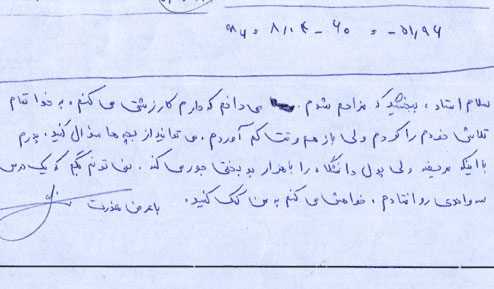 = ۸/۰۴ - ۶۰ = -۵۱/۹۶
سلام استاد، ببخشید که مزاحم شدم. می دانم که دارم کار زشتی می کنم، به خدا تمام
تلاش خودم را کردم ولی باز هم وقت کم آوردم. می توانید از بچه ها سؤال کنید. پدرم
با اینکه مریضه ولی پول دانشگاه را با هزار بدبختی جور می کند. نمی تونم بگم که یک درس
سه واحدی رو افتادم. خواهش می کنم به من کمک کنید.
با عرض معذرت